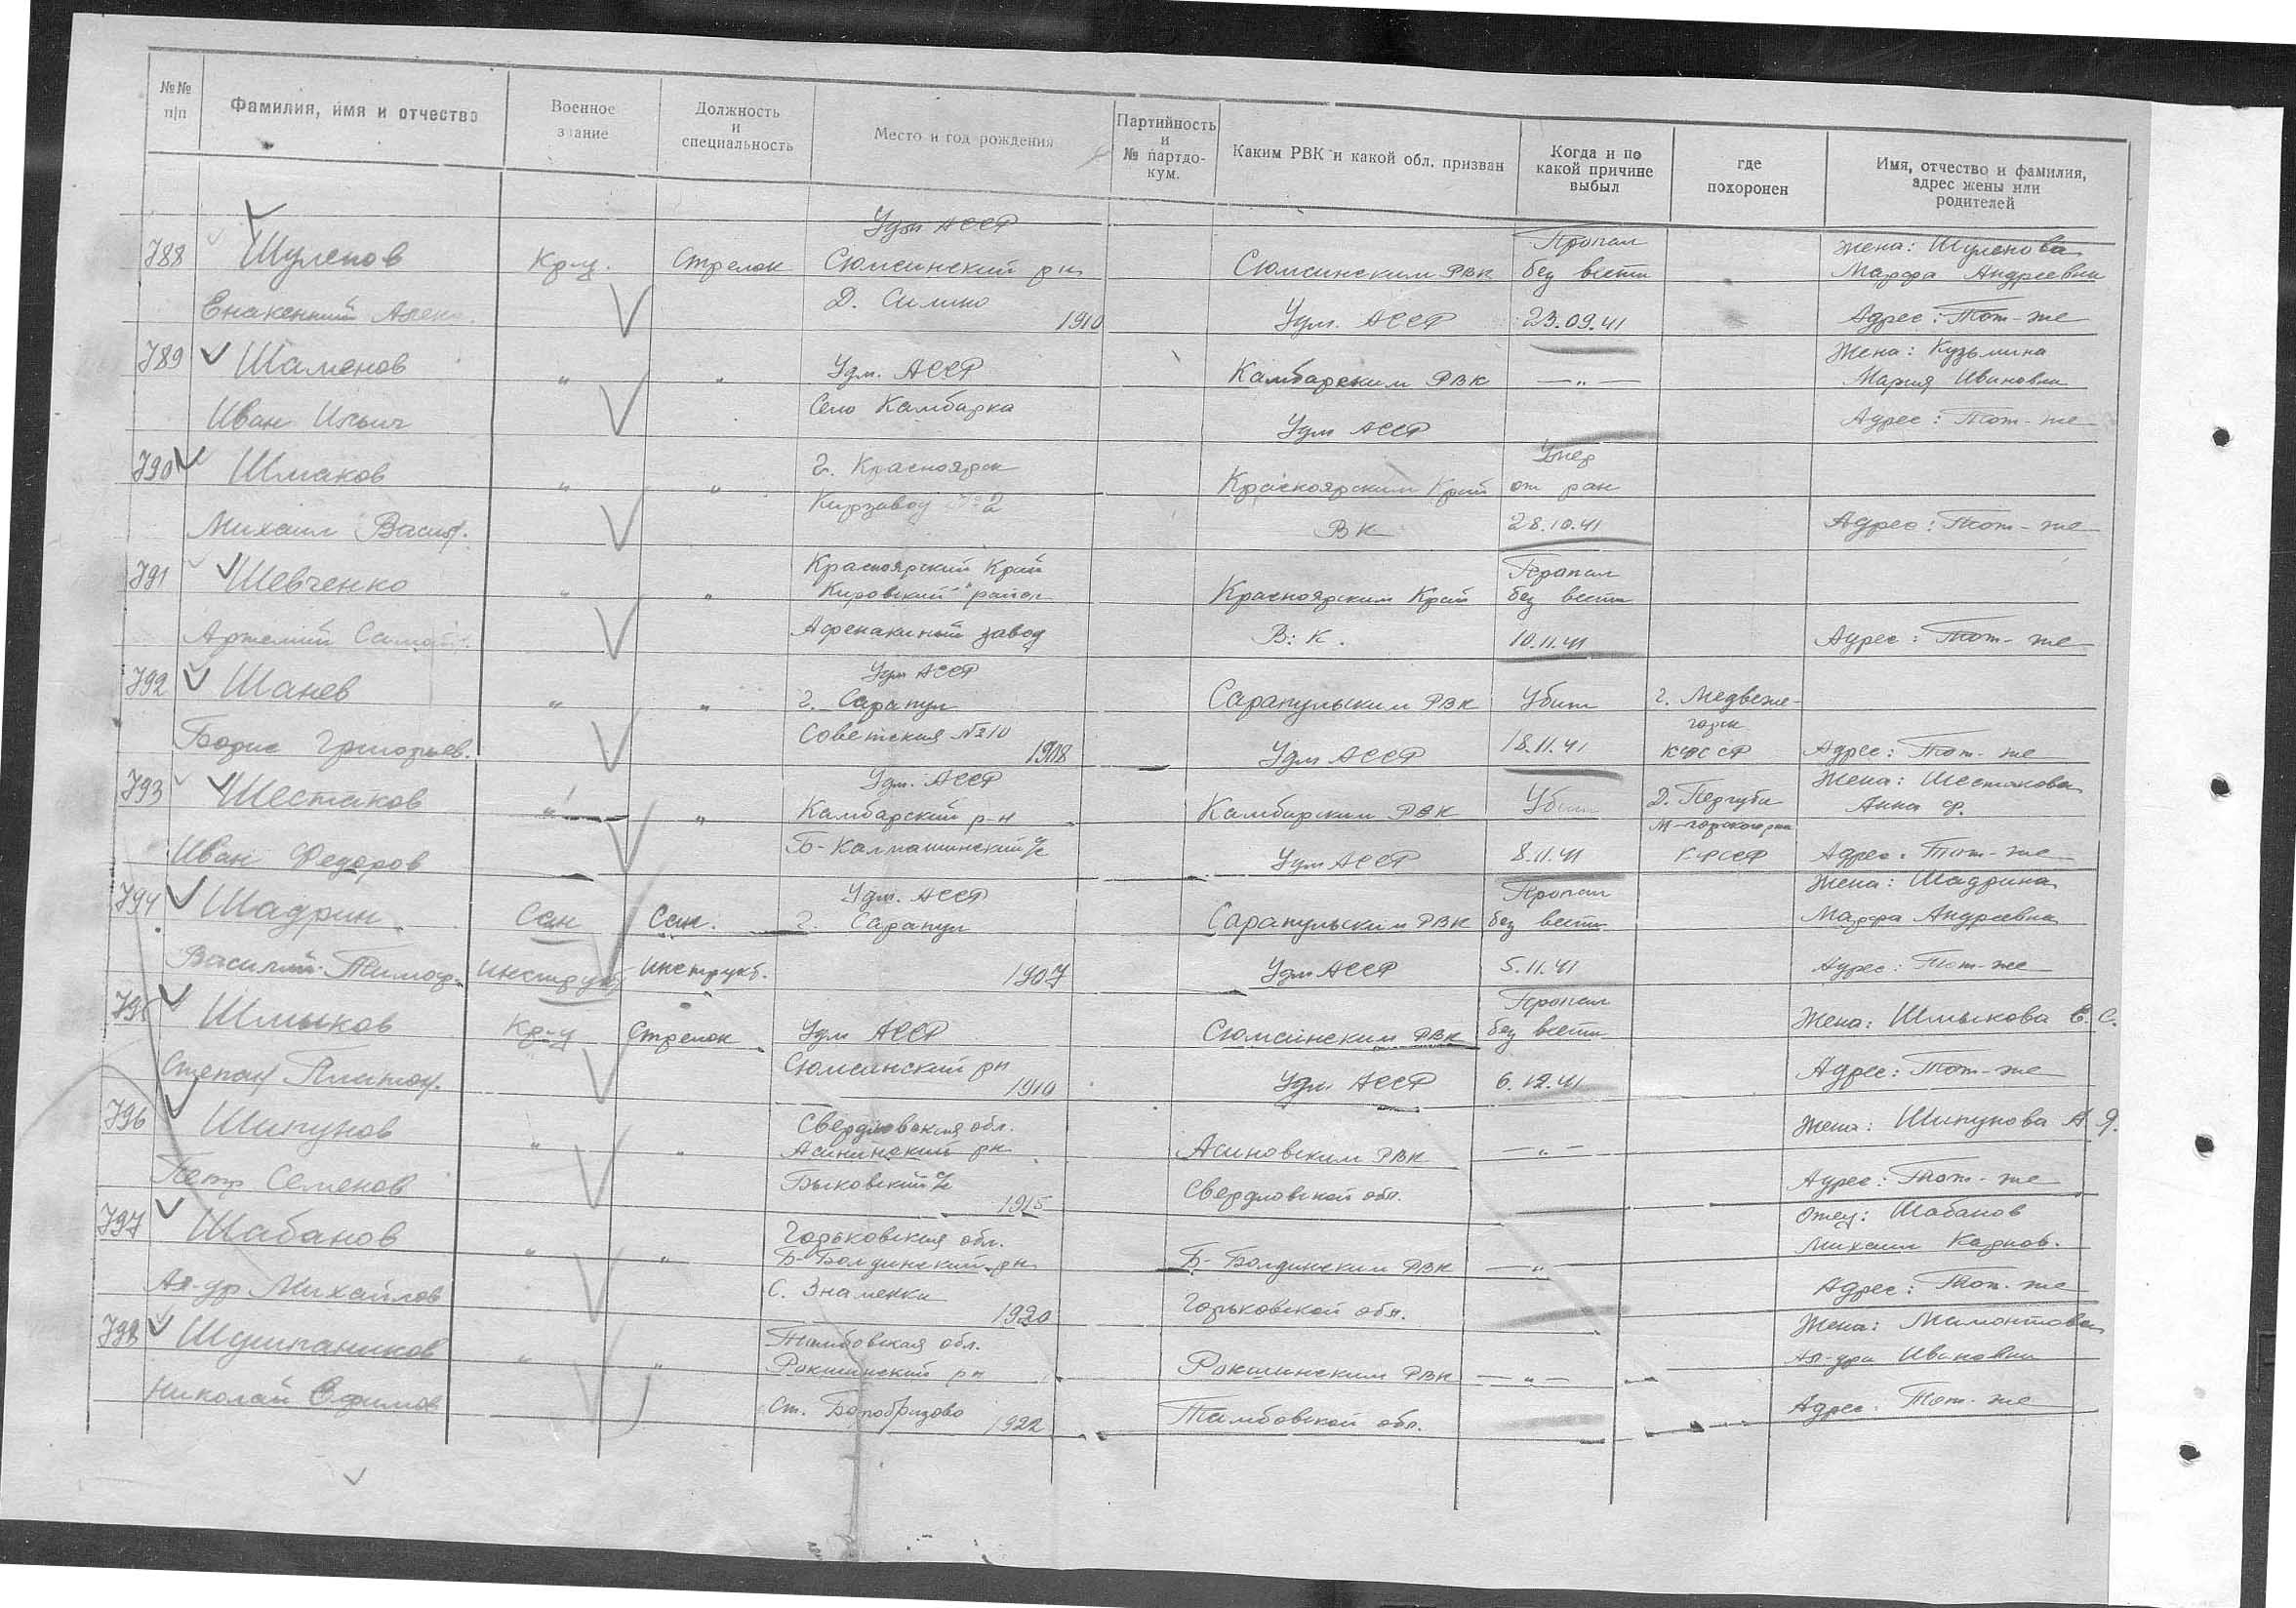 №№ п/п
Фамилия, имя и отчество
Военное звание
Должность и специальность
Место и год рождения
Партийность и № партдокум.
Каким РВК и какой обл. призван
Когда и по какой причине выбыл
где похоронен
Имя, отчество и фамилия, адрес жены или родителей
Удм АССР Пропал Жена: Шуленова
788 Шуленов Кр-ц. Стрелок Сюмсинский рн Сюмсинским РВК без вести Марфа Андреевна
Д. Силино 1910 Удм. АССР 23.09.41 Адрес: Тот-же
789 Шаменов " " Удм. АССР Камбарским РВК —"— Жена: Кузьмина Мария Ивановна
Иван Ильич Село Камбарка Удм АССР Адрес: Тот-же
790 Шмаков " " г. Красноярск Красноярским Край Умер от ран
Михаил Васил. Кирзавод № 2 ВК 28.10.41 Адрес: Тот-же
791 Шевченко " " Красноярский Край "Кировский" район Красноярским Край Пропал без вести
Артемий завод В.К. 10.11.41 Адрес: Тот-же
792 Шанев " " Удм АССР г. Сарапул Сарапульским РВК Убит г. Медвеже-
горск
Борис Григорьев. Советская №210 1918 Удм АССР 18.11.41 КФССР Адрес: Тот-же
793 Шестаков " " Удм. АССР Камбарский р-н Камбарским РВК Убит Д. Пергуба Жена: Шестакова Анна Ф.
Иван Федоров Б-Калмашинский с/с Удм АССР 8.11.41 КФССР Адрес: Тот-же
794 Шадрин Сан Сан. Удм. АССР г. Сарапул Сарапульским РВК Пропал без вести Жена: Шадрина Марфа Андреевна
Василий Тимоф. инструкт. инструкт. 1907 Удм АССР 5.11.41 Адрес: Тот-же
795 Шмыков Кр-ц Стрелок Удм АССР Сюмсинским РВК Пропал без вести Жена: Шмыкова Е. С.
Степан Платон. Сюмсинский рн 1910 Удм АССР 6.12.41 Адрес: Тот-же
796 Шипунов " " Свердловская обл. Асининский рн Асиновским РВК —"— Жена: Шипунова А. Я.
Петр Семенов Быковский с/с 1915 Свердловской обл. Адрес: Тот-же
797 Шабанов " " Горьковская обл. Б-Болдинский рн Б-Болдинским РВК —"— Отец: Шабанов Михаил Карпов.
Ал-др Михайлов С. Знаменка 1920 Горьковской обл. Адрес: Тот-же
798 Шушпаников " " Тамбовская обл. Ракшинский рн Ракшинским РВК —"— Жена: Мамонтова Ал-дра Ивановна
Николай Ефимов Ст. 1922 Тамбовской обл. Адрес: Тот-же